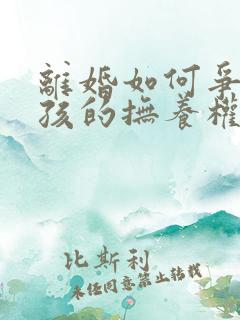 離婚如何爭
孩的撫養權
比斯利
未经同意禁止转载